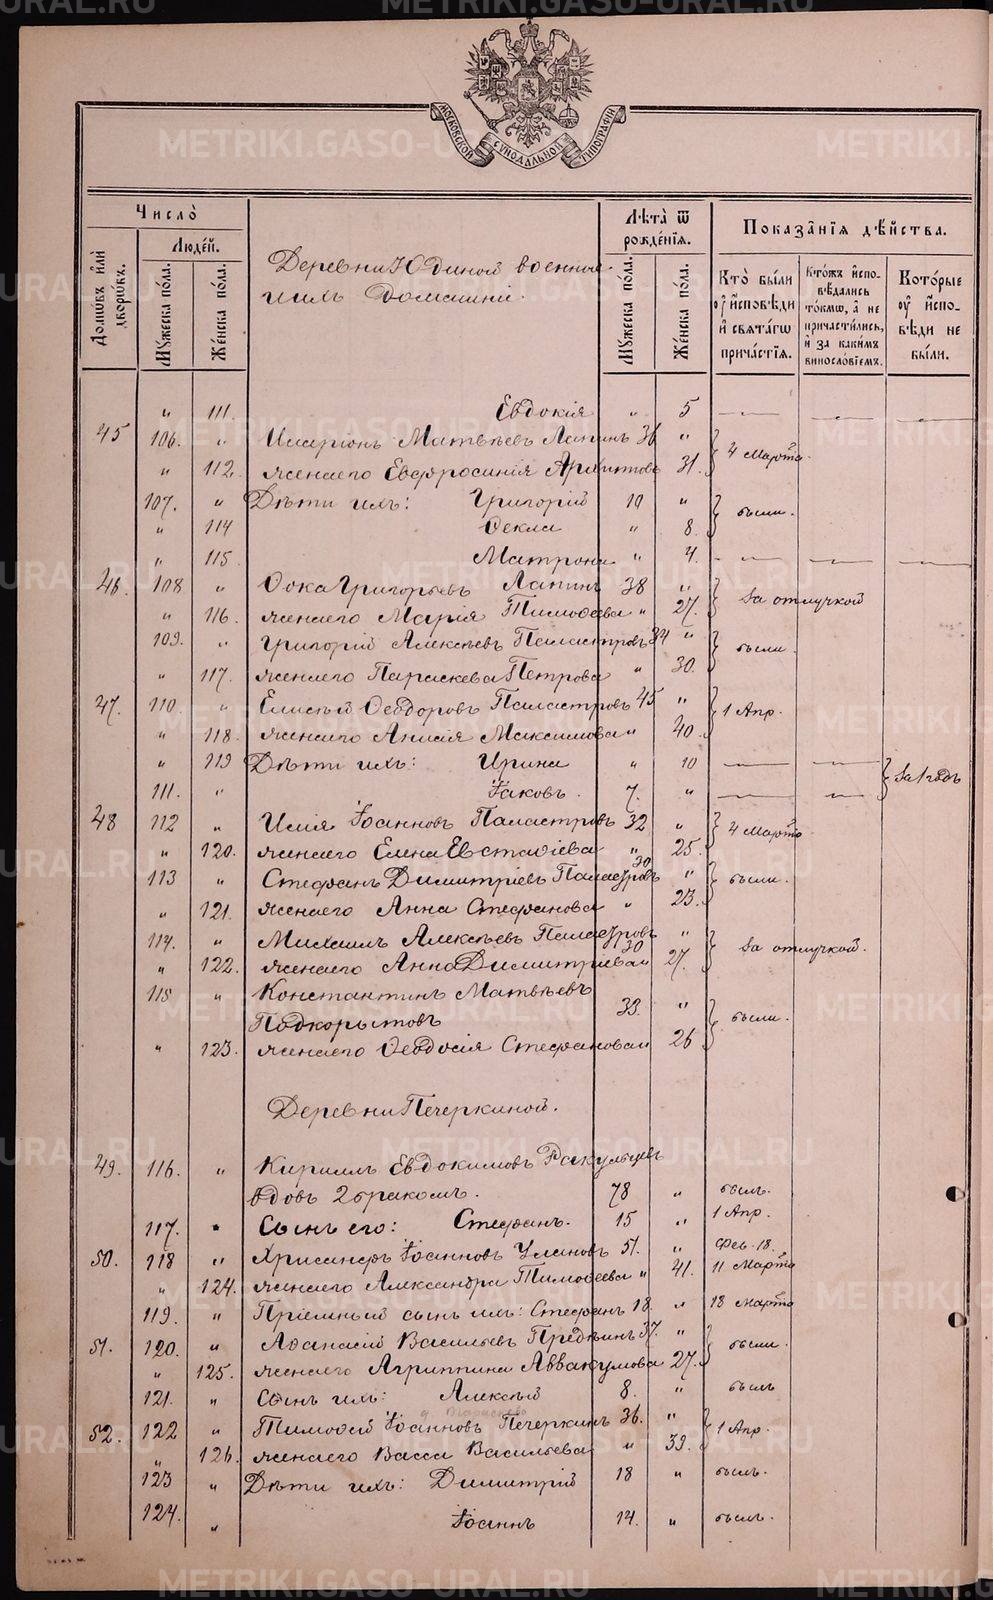 METRIKI.GASO-URAL.RU
МОСКОВСКОЙ СѴНОДАЛЬНОЙ ТИПОГРАФІИ
Число̀
Людей.
Домѡвъ или дворѡвъ.
Мꙋжеска по́ла.
Же́нска по́ла.
Деревни Юдиной военные
и ихъ домашніе.
Лѣта̀ ѿ рожде́нїѧ.
Мꙋжеска по́ла.
Же́нска по́ла.
Показа̑нїѧ дѣ́йства.
Кто̀ бы́ли ᲂу҆ и҆сповѣди и҆ свѧта́гѡ прича́стїѧ.
Кто́жъ и҆сповѣдались то́кмѡ, а҆ не причасти́лись, и҆ за каки́мъ винослові́емъ.
Кото́рые ᲂу҆ и҆сповѣди не бы́ли.
" 111. Евдокія " 5
45 106. " Иларіонъ Матвѣевъ Лапинъ 36 " 4 Марта
" 112. жена его Евфросинія Архипова 31.
107. " Дѣти ихъ: Григорій 10 " были.
" 114 Ѳекла " 8.
" 115. Матрона " 4.
46. 108 " Ѳока Григорьевъ Лапинъ 38 " За отлучкой
" 116. жена его Марія Тимоѳеева " 27.
109. " Григорій Алексѣевъ Паластровъ 34 " были.
" 117. жена его Параскева Петрова " 30.
47. 110. " Елисѣй Ѳеодоровъ Паластровъ 45 " 1 Апр.
" 118. жена его Анисія Максимова " 40
" 119 Дѣти ихъ: Ирина " 10 За 1 годъ
111. " Іаковъ. 7. "
48 112 " Илія Іоанновъ Паластровъ 32 " 4 Марта
" 120. жена его Елена Евстаѳіева " 25.
113 " Стефанъ Димитріевъ Паластровъ 30 " были.
" 121. жена его Анна Стефанова " 23.
114. " Михаилъ Алексѣевъ Паластровъ 30 " За отлучкой.
" 122. жена его Анна Димитріева " 27.
115 " Константинъ Матвѣевъ
Подкорытовъ 33. " были.
" 123. жена его Ѳеодосія Стефанова " 26
Деревни Печеркиной.
49. 116. " Кириллъ Евдокимовъ
вдовъ 2 бракомъ. 78 " былъ.
117. " Сынъ его: Стефанъ. 15 " 1 Апр.
50. 118 " Хрисанфъ Іоанновъ Улановъ 51. " Фев. 18.
" 124. жена его Александра Тимоѳеева " 41. 11 Марта
119. " Пріемный сынъ ихъ: Стефанъ 18. " 18 Марта
51. 120. " Аѳанасій Васильевъ Предѣинъ 37. " были.
" 125. жена его Агриппина Аввакумова 27.
121. " Сынъ ихъ: Алексѣй 8. " былъ
52. 122 " Тимоѳей Іоанновъ Печеркинъ 36. " 1 Апр.
" 126. жена его Васса Васильева " 39.
123 " Дѣти ихъ: Димитрій 18 " былъ.
124. " Іоаннъ 14. " былъ.